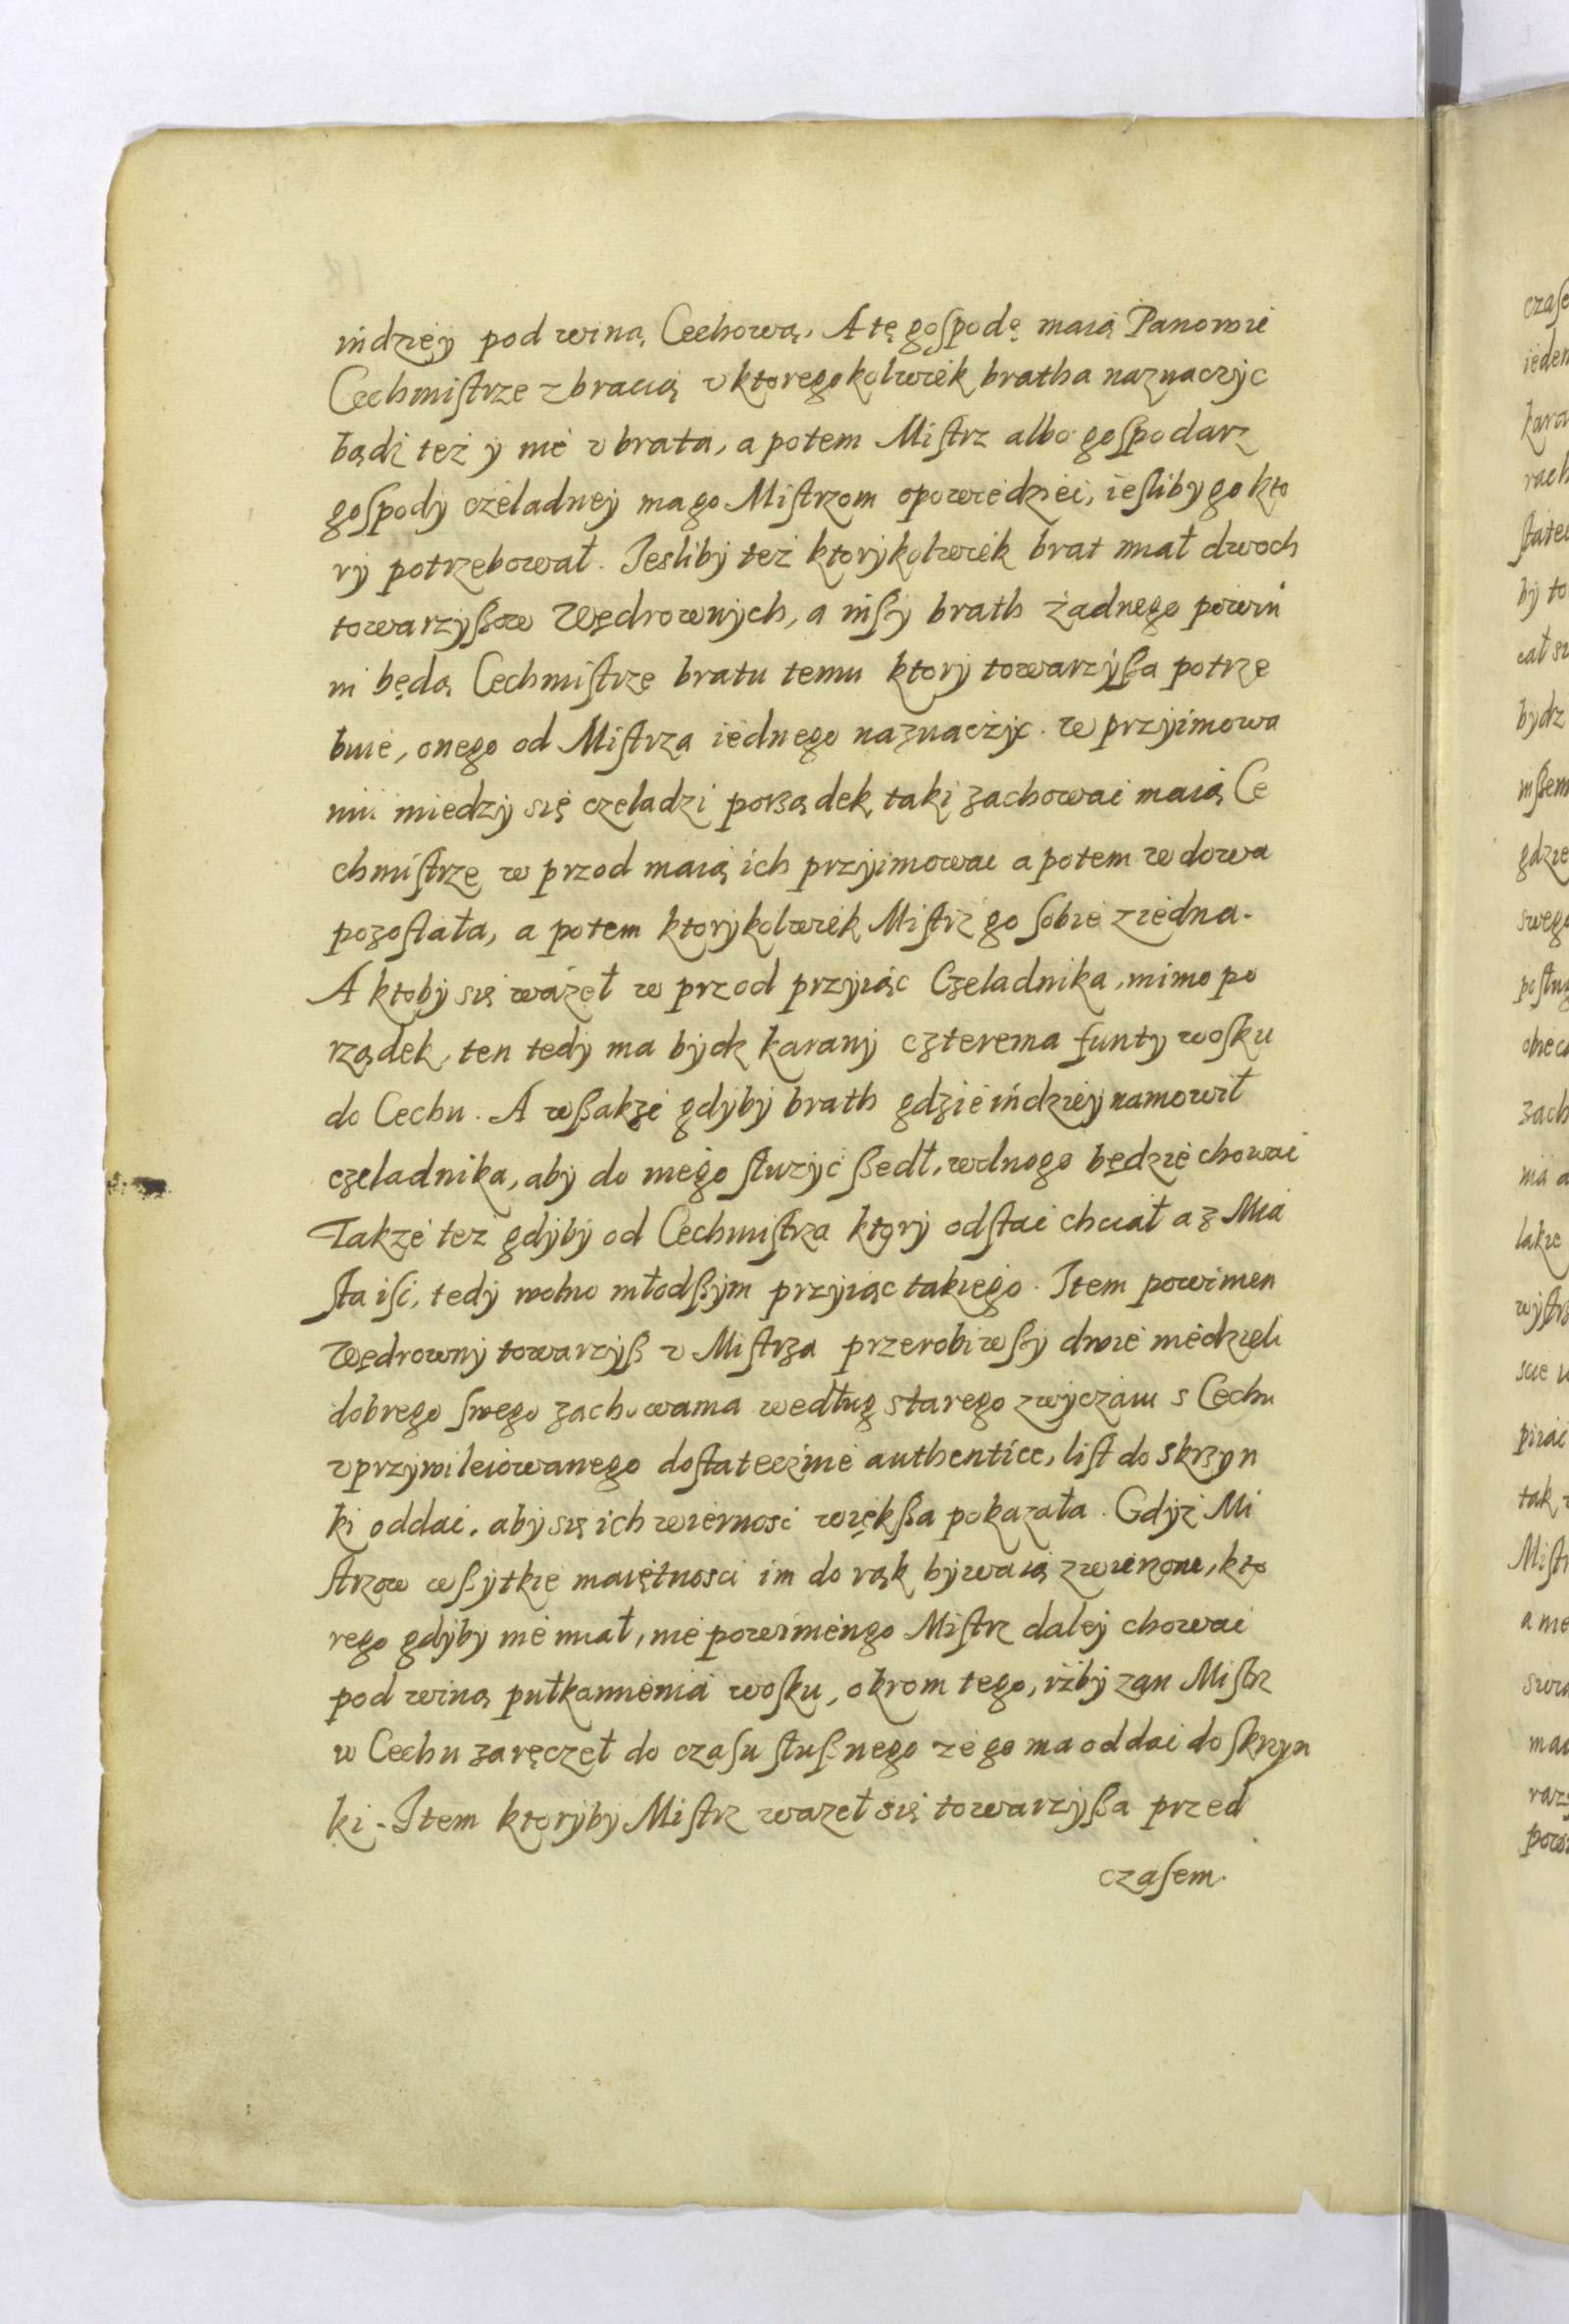 indzieÿ pod winą Cechową, A tę gospodę maią Panowie
Cechmistrze z bracią v ktoregokolwiek bratha naznaczÿc
bądź też ÿ nie v brata, a potem Mistrz albo gospodarz
gospodÿ czeladneÿ ma go Mistrzom opowiedzieć, iesliby go kto
rÿ potrzebował. Iesliby też ktorÿkolwiek brat miał dwoch
towarzyßow Wędrownÿch, a inßÿ brath żadnego powin
ni będą Cechmistrze bratu temu ktorÿ towarzÿßa potrze
buie, onego od Mistrza iednego naznaczÿc. w przÿimowa
niu miedzÿ się czeladzi porządek taki zachować maią Ce
chmistrze w przod maią ich przÿimować a potem wdowa
pozostała, a potem ktorÿkolwiek Mistrz go sobie ziedna.
A ktobÿ się ważeł w przod przÿiąc Czeladnika, mimo po
rządek, ten tedÿ ma bÿdz karanÿ czterema funtÿ wosku
do Cechu. A wßakże gdÿbÿ brath gdzieindzieÿ namowił
czeladnika, abÿ do niego służÿć ßedł, wolno go będzie chować
Także też gdÿbÿ od Cechmistrza ktorÿ odstać chciał a z Mia
sta iść, tedÿ wolno młodßÿm przÿiąc takiego. Item powinien
Wędrownÿ towarzÿß v Mistrza przerobiwßÿ dwie niedzieli
dobrego swego zachowania według starego zwÿczaiu s Cechu
vprzÿwileiowanego dostatecznie authentice, list do skrzÿn
ki oddać, abÿ się ich wierność więkßa pokazała. Gdÿż Mi
strzow wßÿtkie maiętnosci im do rąk bÿwaią zwierzone, kto
rego gdÿbÿ nie miał, nie powinien go Mistrz daleÿ chować
pod winą pułkamienia wosku, okrom tego, iżbÿ zan Mistrz
w Cechu zaręczeł do czasu słußnego że go ma oddać do skrzyn
ki. Item ktorÿbÿ Mistrz ważeł się towarzÿßa przed
czasem.